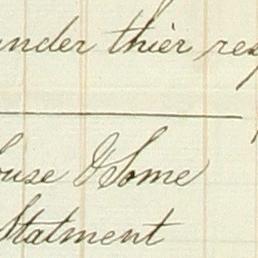 under thier res
ouse & Some
Statment